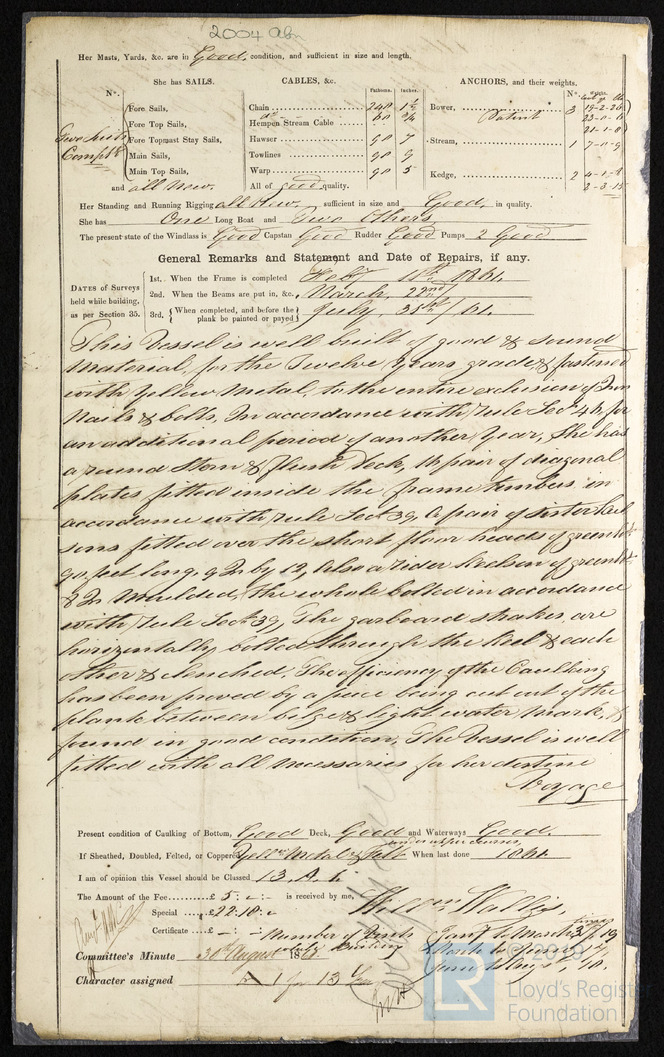 2004 abn
Her Masts, Yards, &c. are in Good condition, and sufficient in size and length.
She has SAILS. CABLES, &c. ANCHORS, and their weights.
N°. Fathoms. Inches. N°. Weights.
Fore Sails, Chain 240 Bower, Patent 3
Fore Top Sails, Hempen Stream Cable
Two Suits Complt Fore Topmast Stay Sails, Hawser 90 7 Stream, 1
Main Sails, Towlines 90
Main Top Sails, Warp 90 5 Kedge, 2
and all New. All of good quality.
Her Standing and Running Rigging all New. sufficient in size and Good. in quality.
She has One Long Boat and Two Others
The present state of the Windlass is Good Capstan Good Rudder Good Pumps 2 Good
General Remarks and Statement and Date of Repairs, if any.
DATES of Surveys held while building, as per Section 35.
1st. When the Frame is completed Feby 1861.
2nd. When the Beams are put in, &c., March, 22nd
3rd. When completed, and before the plank be painted or payed July, /61.
This Vessel is well built of good & sound
material, for the Twelve Years grade & fastened
with Yellow Metal, to the entire exclusion of Iron
Nails & bolts, In accordance with rule Sect. for
an additional period of another Year, She has
a round Stern & flush deck, pair of diagonal
plates fitted inside the frame timbers in
accordance with rule Sect. 39, A pair of Sister Keel
sons fitted over the short floor heads of greenht
90 feet long, 9 In by 12, Also a rider Keelson of greenht
In Moulded, the whole bolted in accordance
with rule Sect. 39, The garboard strakes are
horizontally bolted through the Keel & each
other & clenched, The efficiency of the Caulking
has been proved by a piece being cut out of the
plank between bilge & light water Mark, &
found in good condition, The Vessel is well
fitted with all necessaries for her destine
Voyage
Present condition of Caulking of Bottom, Good Deck, Good and Waterways Good.
If Sheathed, Doubled, Felted, or Coppered Yellw Metal & Felt When last done 1861
I am of opinion this Vessel should be Classed 13. A. 1.
The Amount of the Fee £ 5 : - : - is received by me, Willm Wallis,
Special £ 22.10 : -
Certificate Number of Visits while building
Committee's Minute 30th August 186
Character assigned A 1 for 13 Years
© 2019
LR Lloyd's Register
Foundation